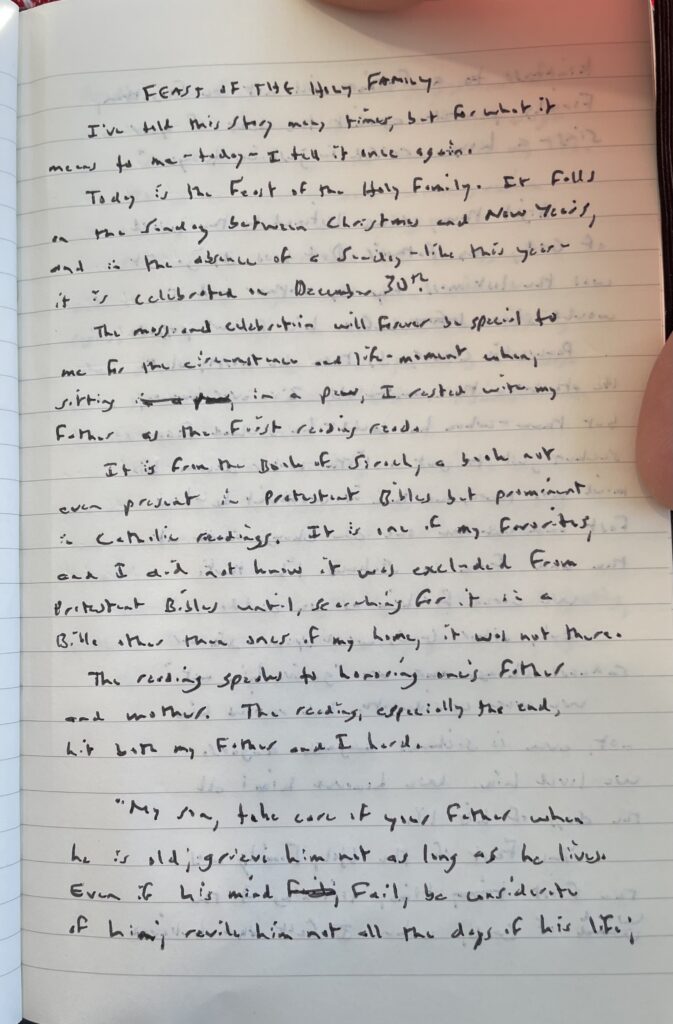 FEAST OF THE HOLY FAMILY
I've told this story many times, but for what it
means to me - today - I tell it once again.
Today is the Feast of the Holy Family. It falls
on the Sunday between Christmas and New Years,
and in the absence of a Sunday - like this year -
it is celibrated on December 30th.
The mass and celebration will forever be special to
me for the circumstance and life-moment when,
sitting in a pew, in a pew, I rested with my
Father as the first reading read.
It is from the Book of Sirach, a book not
even present in Protestant Bibles but prominent
in Catholic readings. It is one of my favorites,
and I did not know it was excluded from
Protestant Bibles until, searching for it in a
Bible other than ones of my home, it was not there.
The reading speaks to honoring one's father
and mother. The reading, especially the end,
hit both my Father and I hard.
"My son, take care of your Father when
he is old; grieve him not as long as he lives.
Even if his mind Fail, be considerate
of him; revile him not all the days of his life;